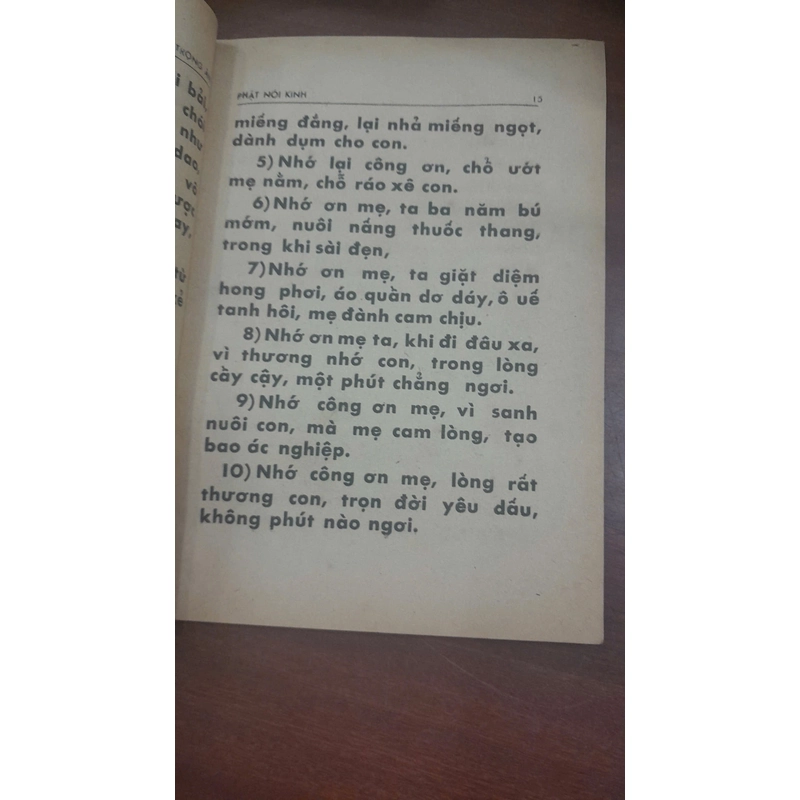 THÔNG
i bải,
chói
như
dao,
về
ược
ay,
từ
kẻ
PHẬT NÓI KINH 15
miếng đắng, lại nhả miếng ngọt,
dành dụm cho con.
5) Nhớ lại công ơn, chổ ướt
mẹ nằm, chỗ ráo xê con.
6) Nhớ ơn mẹ, ta ba năm bú
mớm, nuôi nấng thuốc thang,
trong khi sài đẹn,
7) Nhớ ơn mẹ, ta giặt diệm
hong phơi, áo quần dơ dáy, ô uế
tanh hôi, mẹ đành cam chịu.
8) Nhớ ơn mẹ ta, khi đi đâu xa,
vì thương nhớ con, trong lòng
cầy cậy, một phút chẳng ngơi.
9) Nhớ công ơn mẹ, vì sanh
nuôi con, mà mẹ cam lòng, tạo
bao ác nghiệp.
10) Nhớ công ơn mẹ, lòng rất
thương con, trọn đời yêu dấu,
không phút nào ngơi.